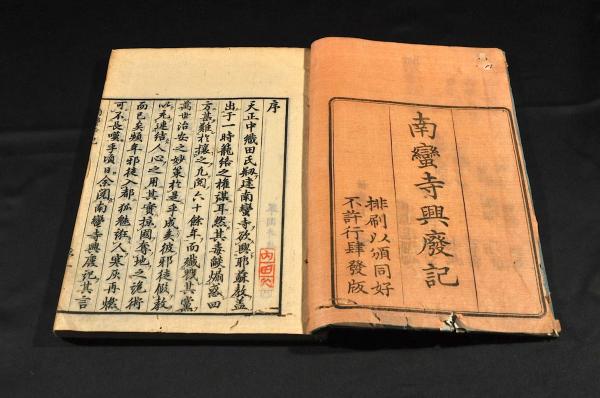 南蠻寺興廢記
排刷以頒同好
不許行肆發版
序
天正中織田氏剏建南蠻寺欲興耶蘇教蓋
出于一時籠絡之權謀耳然其毒燄煽惑四
方蔓難於攘之凡閱六十餘年而殲其黨
萬世治安之妙策於是乎成矣彼邪徒假教
以充連結人心之用其實掠國奪地之詭術
而已矣頃年邪徒入都狐魅人寒灰再燃
可不長嘆乎頃日余閱南蠻寺興廢記其言
内田